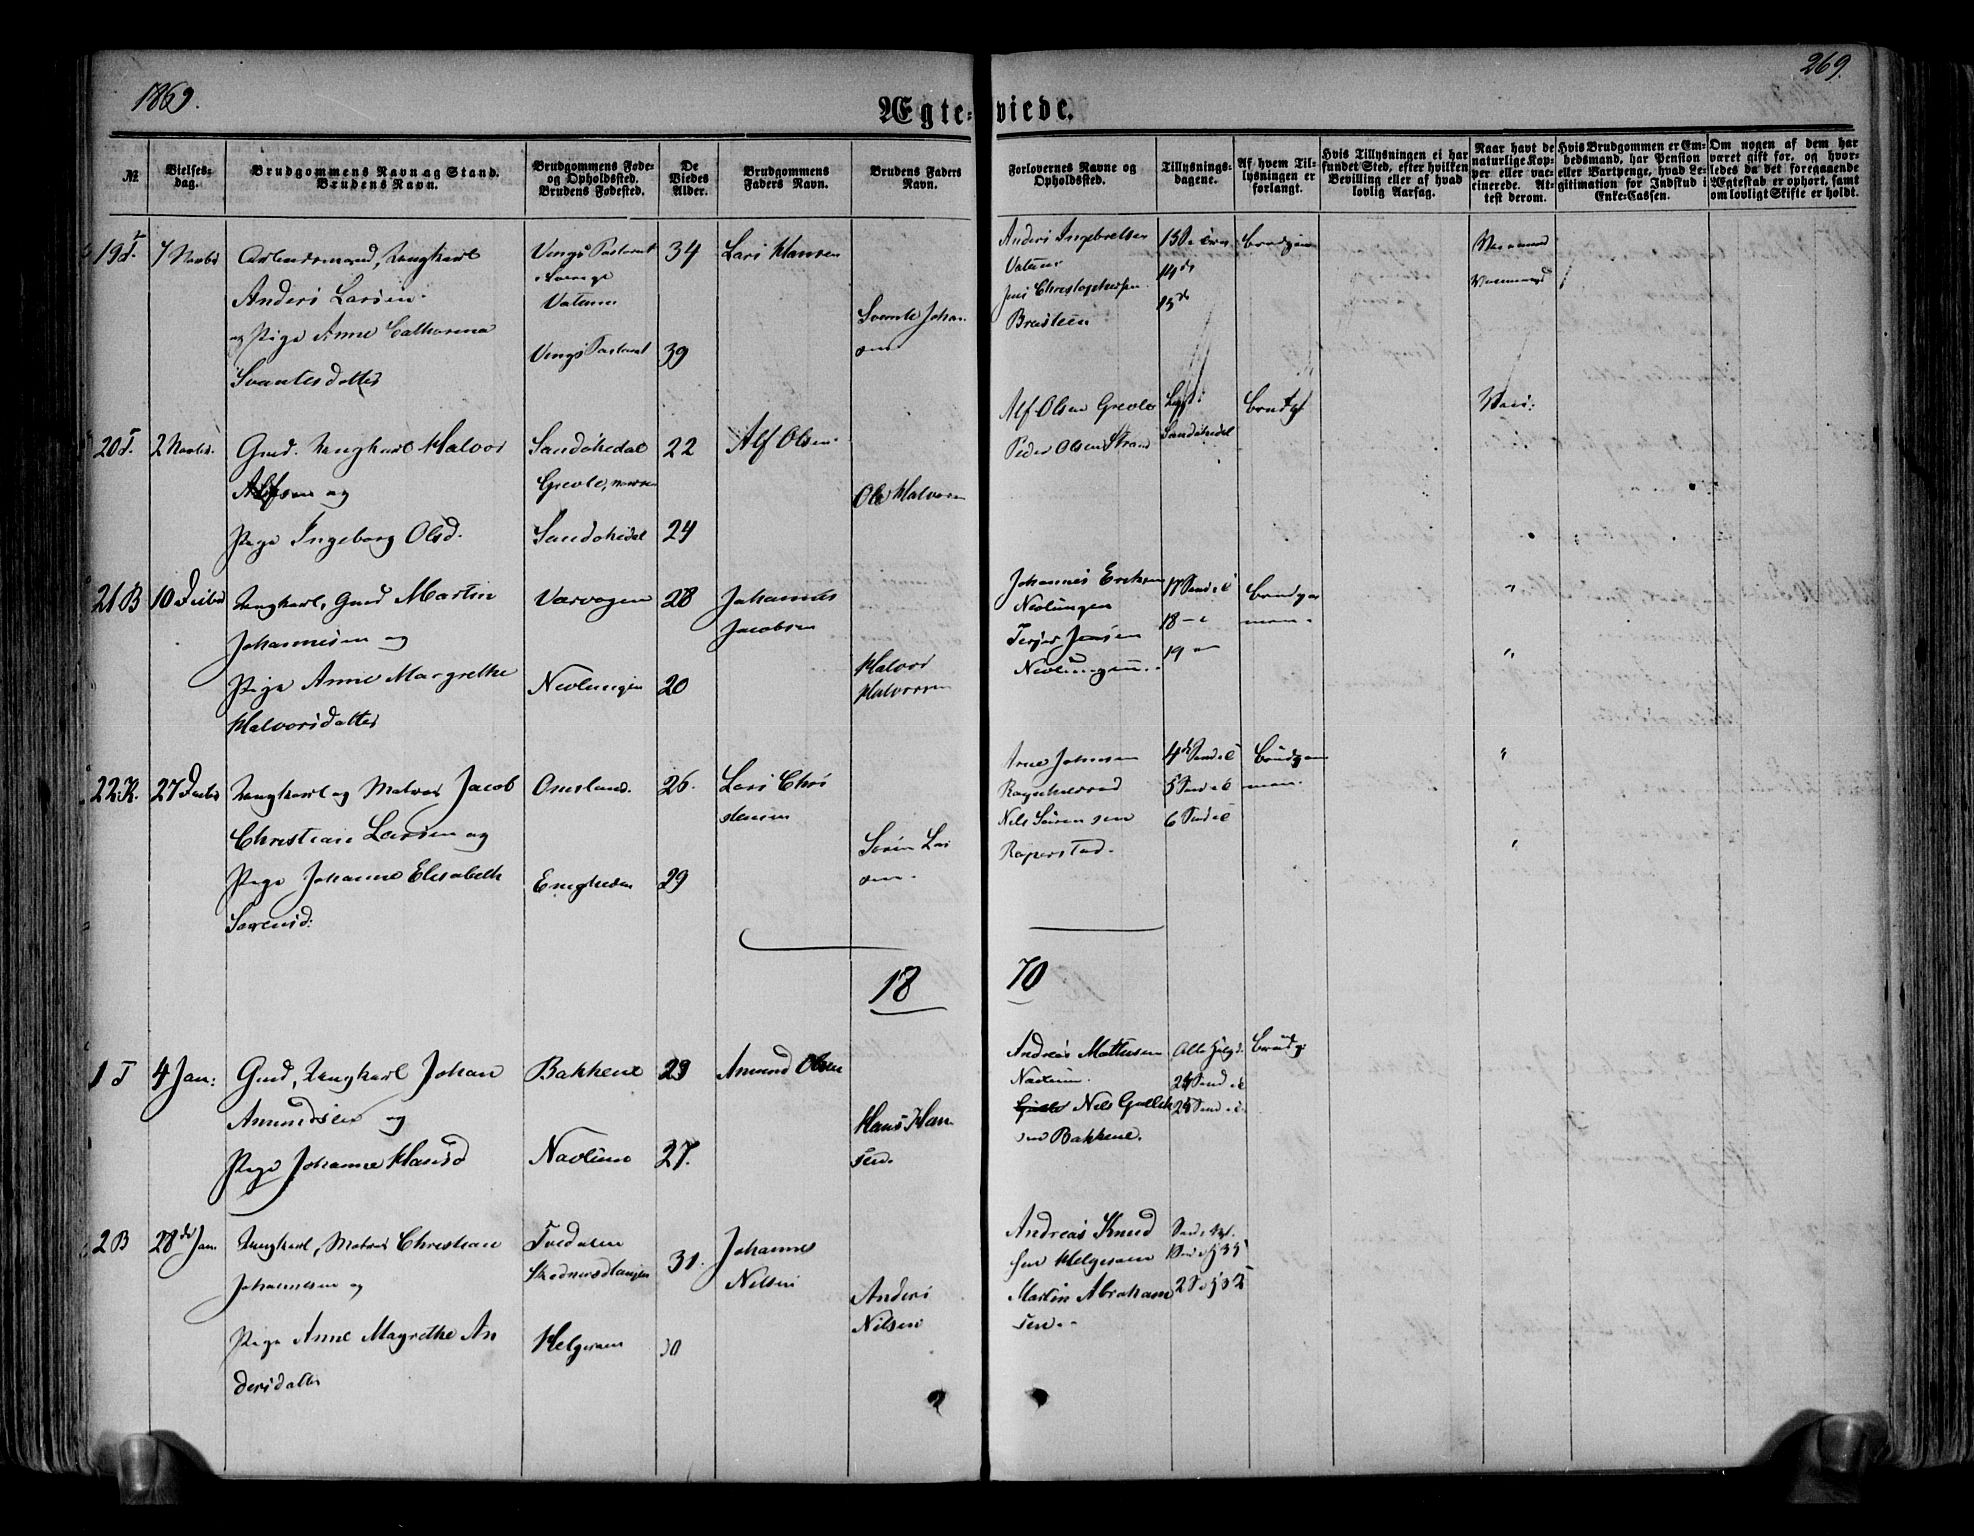 1869.
269.
Ægte-viede.
No.
Vielses-
dag.
Brudgommens Navn og Stand.
Brudens Navn.
Brudgommens Føde-
og Opholdssted.
Brudens Fødested.
De
Viedes
Alder.
Brudgommens
Faders Navn.
Brudens Faders
Navn.
Forlovernes Navne og
Opholdssted.
Tillysnings-
dagene.
Af hvem Til-
lysningen er
forlangt.
Hvis Tillysningen ei har
fundet Sted, efter hvilken
Bevilling eller af hvad
lovlig Aarsag.
Naar havt de
naturlige Kop-
per eller vac-
cinerede. At-
test derom.
Hvis Brudgommen er Em-
bedsmand, har Pension
eller Vartpenge, hvad Le-
gitimation for Indskud i
Enke-Cassen.
Om nogen af dem har
været gift før, og hvor-
ledes da det foregaaende
Ægteskab er ophørt, samt
om lovligt Skifte er holdt.
19 T. 7 Novbr Arbeidsmand, Ungkarl
Anders Larsen
og Pige Anne Catharina
Svantesdatter
Vings Pastorat
Sverige
Vatune
Vings Pastorat
34
39
Lars Hansen
Svante Johan
sen
Anders Ingebretsen
Vatune
Jens Christophersen
Brasteen
13
14de
15de
Brudgom
20 T. 2 Novbr. Gmd. Ungkarl Halvor
Alfsen og
Pige Ingeborg Olsd.
Sandøkedal
Grevle,
Sandøkedal
22
24
Alf Olsen
Ole Halvorsen
Alf Olsen Grevle
Peder Olsen Strand
Sandøkedal
Brudg
21 B 10 Decbr Ungkarl, Gmd Martin
Johannesen og
Pige Anne Margrethe
Halvorsdatter
Varvogen
Nevlungen
28
20
Johannes
Jacobsen
Halvor
Halvorsen
Johannes Eriksen
Nevlungen
Terjer Jensen
Nevlungen.
17 Sond e
18 – e
19 –
Brudgom
men.
22 K. 27 Decbr Ungkarl og Matros Jacob
Christian Larsen og
Pige Johanne Elisabeth
Sørensd:
Omsland.
Enigheden
26.
29
Lars Chri
stensen
Søren Lar
sen.
Arne Johnsen
Nils Sørensen
Raperstad.
4de Sond e
5 Sond e
6 Sond e
Brudgom
men.
18 70
1 T 4 Jan: Gmd, Ungkarl Johan
Amundsen og
Pige Johanne Hansd
Bakkene
Navlune
23
27.
Amund Olsen
Hans Han
sen.
Andreas Mathisen
Navlum.
Nels Gullik
sen Bakkene.
Alle Helg d.
24 Sond e
25 Sond e
Brudg
2 B 28de Jan. Ungkarl, Matros Christian
Johannesen og
Pige Anne Magrethe An
dersdatter
Tvedalen
Helgeroen
31.
30
Johannes
Nilsen
Anders
Nilsen
Andreas Knud
sen Helgeroen
Martin Abraham
sen.